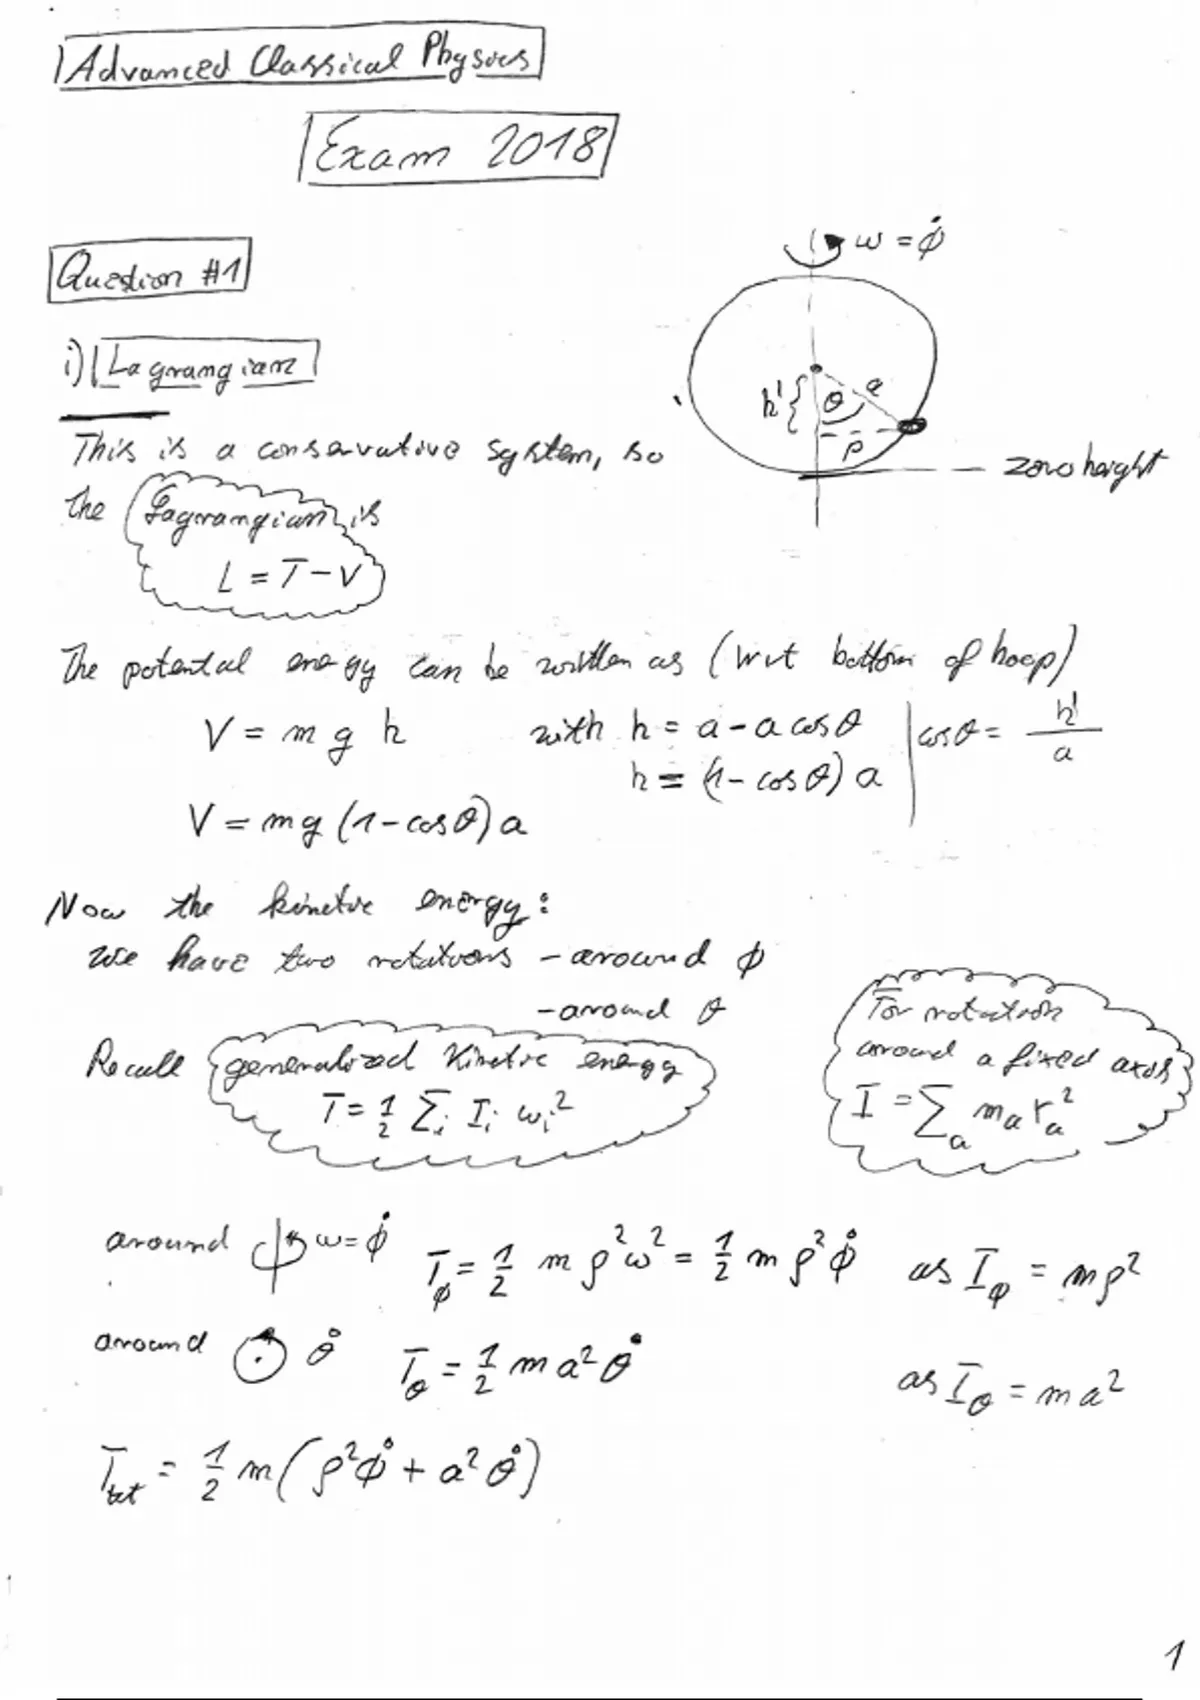 Advanced Classical Physics
Exam 2018
Question #1
ω = φ̇
i) Lagrangian
h' { θ a
ρ
zero height
This is a conservative system, so
the Lagrangian is
L = T - V
The potential energy can be written as (wrt bottom of hoop)
V = m g h with h = a - a cosθ | cosθ = h'/a
h = (1 - cosθ) a
V = mg (1 - cosθ) a
Now the kinetic energy:
we have two rotations - around φ
- around θ
Recall generalized kinetic energy
T = 1/2 Σi Ii ωi²
For rotation
around a fixed axis
I = Σa ma ra²
around ω = φ̇ Tφ = 1/2 m ρ² ω² = 1/2 m ρ² φ̇ as Iφ = mρ²
around θ̇ Tθ = 1/2 m a² θ̇ as Iθ = m a²
Ttot = 1/2 m (ρ² φ̇ + a² θ̇)
1